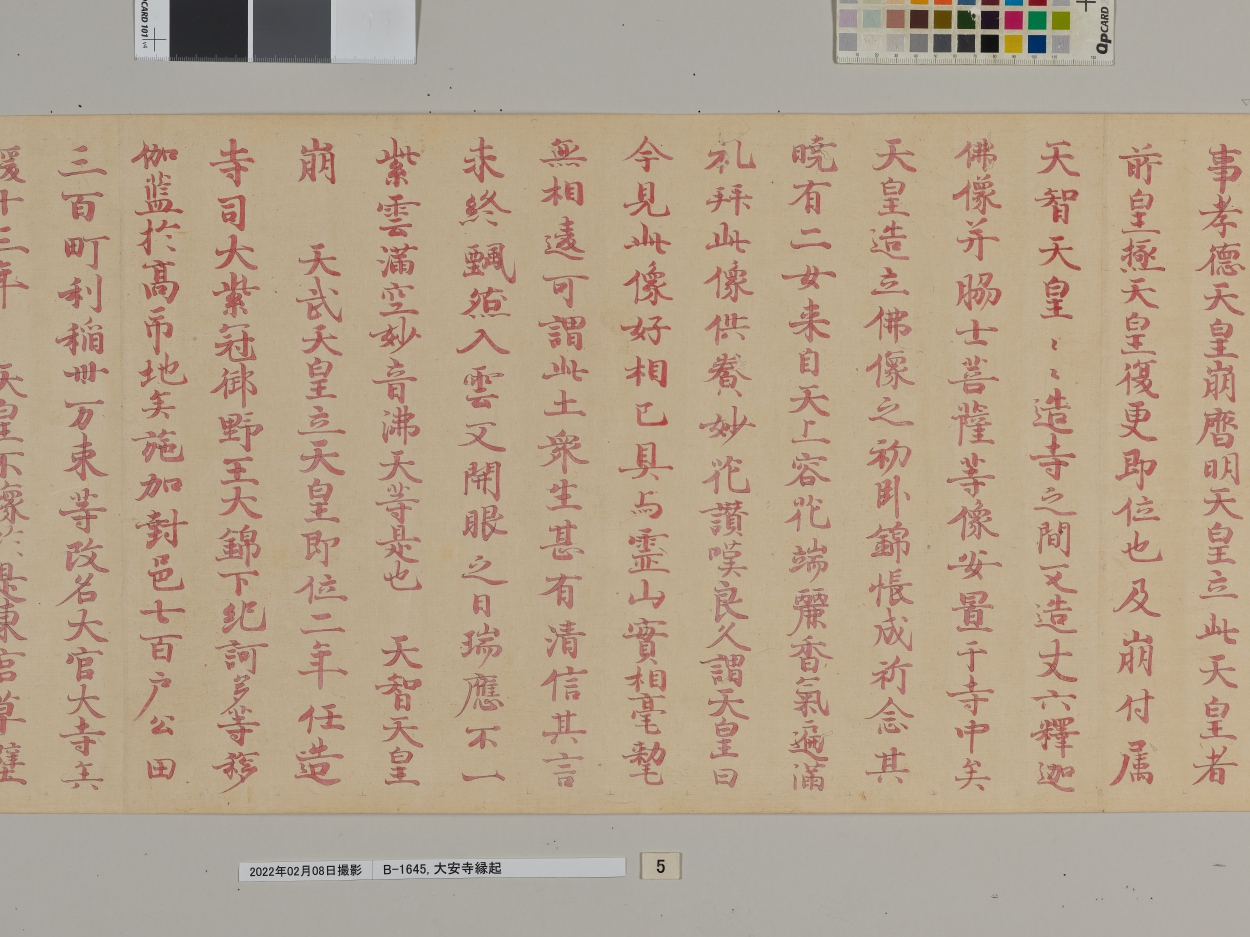 事孝德天皇崩譍明天皇立此天皇者
前皇極天皇復更即位也及崩付属
天智天皇〻〻造寺之間又造丈六釋迦
佛像并脇士菩薩等像安置于寺中矣
天皇造立佛像之初卧錦帳成祈念其
暁有二女来自天上容花端麗香氣遍滿
礼拜此像供養妙花讃嘆良久謂天皇曰
今見此像好相已具与霊山實相毫氂
無相違可謂此土衆生甚有清信其言
未終飄然入雲又開眼之日瑞應不一
紫雲滿空妙音沸天等是也 天智天皇
崩 天武天皇立天皇即位二年任造
寺司大紫冠御野王大錦下紀訶多等移
伽藍於髙市地矣施加對邑七百户公田
三百町利稲卌万束等改名大官大寺矣
十三年 天皇不懷於是東宮草壁
2022年02月08日撮影 B-1645, 大安寺縁起
5
CARD 101 v4
QPCARD